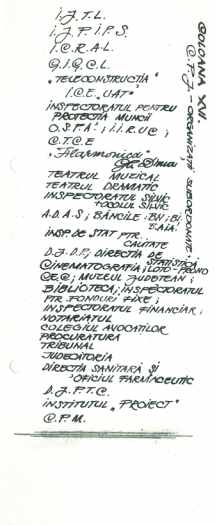 COLOANA XVI.
C.P.J. - ORGANIZAȚII SUBORDONATE:
I.J.T.L.
I.J.P.I.P.S.
I.C.R.A.L.
G.I.G.C.L.
"TELECONSTRUCTIA"
I.C.E. "UAT"
INSPECTORATUL PENTRU
PROTECȚIA MUNCII
O.S.P.A.; I.I.R.U.C;
C.T.C.E
"Filarmonica"
TEATRUL MUZICAL
TEATRUL DRAMATIC
INSPECTORATUL SILVIC
OCOLUL SILVIC
A.D.A.S; BĂNCILE: BN; BI
B.A.I.A.
INSP. DE STAT PTR.
CALITATE
D.J.D.P; DIRECȚIA DE
STATISTICĂ
CINEMATOGRAFIA; LOTO-PRONO
C.E.C; MUZEUL JUDEȚEAN;
BIBLIOTECA; INSPECTORATUL
PTR. FONDURI FIXE;
INSPECTORATUL FINANCIAR;
NOTARIATUL
COLEGIUL AVOCAȚILOR
PROCURATURA
TRIBUNAL
JUDECĂTORIA
DIRECȚIA SANITARĂ ȘI
OFICIUL FARMACEUTIC
D.J.P.T.C.
INSTITUTUL "PROIECT"
C.P.M.